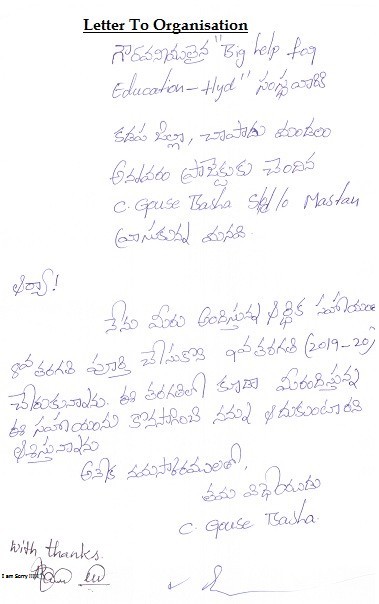 Letter To Organisation
గౌరవనీయులైన "Big help for
Education-Hyd" సంస్థ వారికి
కడప జిల్లా, చాపాడు మండలం
అన్నవరం ప్రాజెక్టుకు చెందిన
C. Gouse Basha S/o Mastan
వ్రాసుకున్న మనవి.
ఆర్యా!
నేను మీరు అందిస్తున్న ఆర్థిక సహాయంతో
8వ తరగతి పూర్తి చేసుకొని 9వ తరగతి (2019-20)
చేరుకున్నాను. ఈ తరగతిలో కూడా మీరందిస్తున్న
ఈ సహాయంను కొనసాగించి నన్ను ఆదుకుంటారని
ఆశిస్తున్నాను
అనేక నమస్కారములతో,
తమ విధేయుడు
C. Gouse Basha.
With thanks.
I am Sorry !!!!